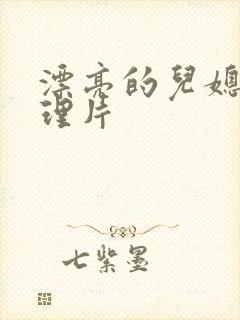 漂亮的兒媳
理片
七紫墨